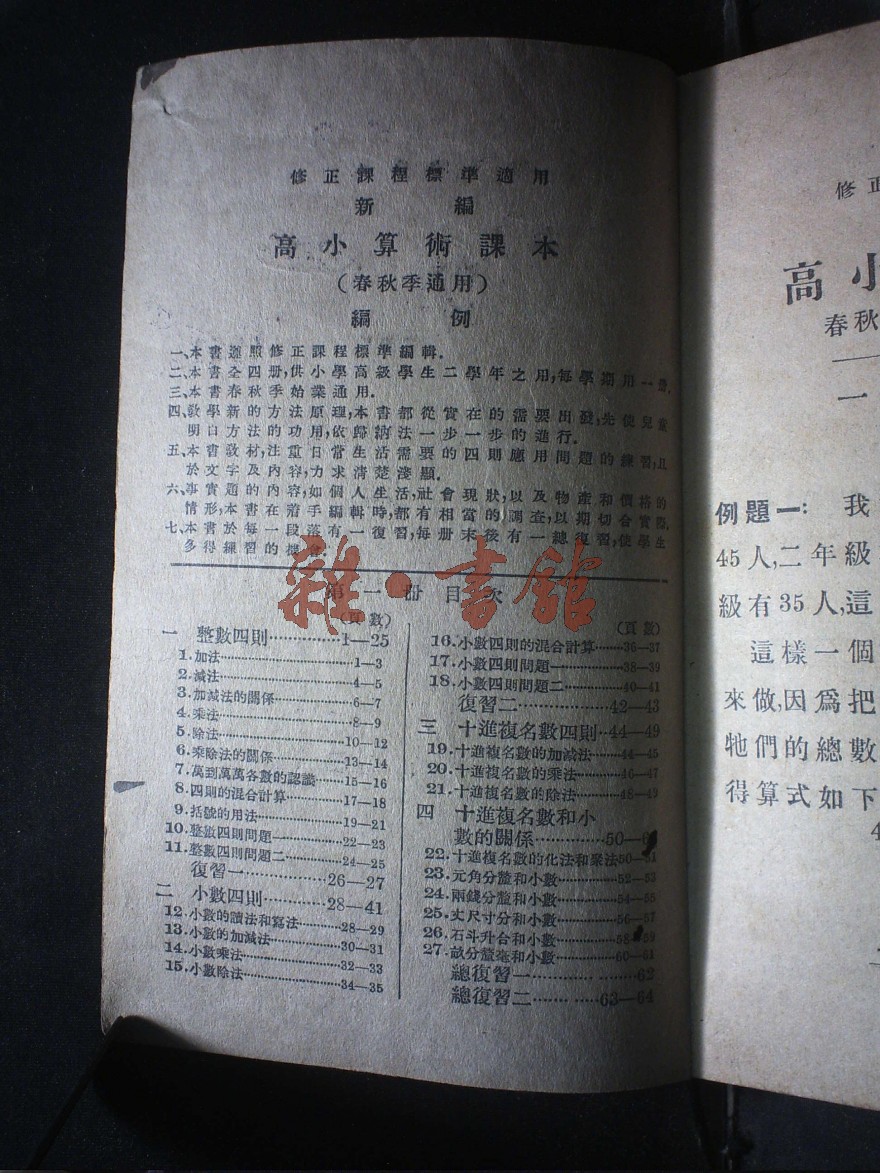 修正課程標準適用
新編
高小算術課本
(春秋季通用)
編例
一、本書遵照修正課程標準編輯.
二、本書全四册,供小學高級學生二學年之用,每學期用一册.
三、本書春秋季始業通用.
四、敎學新的方法原理,本書都從實在的需要出發,先使兒童
明白方法的功用,依歸納法一步一步的進行.
五、本書敎材,注重日常生活需要的四則應用問題的練習,且
於文字及內容,力求清楚淺顯.
六、事實題的內容,如個人生活,社會現狀,以及物產和價格的
情形,本書在着手編輯時,都有相當的調查,以期切合實際.
七、本書於每一段落有一復習,每册末後有一總復習,使學生
多得練習的機會.
雜·書館
第一册目次
(頁數)
一 整數四則…………1—25
1.加法…………1—3
2.減法…………4—5
3.加減法的關係…………6—7
4.乘法…………8—9
5.除法…………10—12
6.乘除法的關係…………13—14
7.萬到萬萬各數的認識…………15—16
8.四則的混合計算…………17—18
9.括號的用法…………19—21
10.整數四則問題一…………22—23
11.整數四則問題二…………24—25
復習一…………26—27
二 小數四則…………28—41
12.小數的讀法和寫法…………28—29
13.小數的加減法…………30—31
14.小數乘法…………32—33
15.小數除法…………34—35
(頁數)
16.小數四則的混合計算…………36—37
17.小數四則問題一…………38—39
18.小數四則問題二…………40—41
復習二…………42—43
三 十進複名數四則…44—49
19.十進複名數的加減法…………44—45
20.十進複名數的乘法…………46—47
21.十進複名數的除法…………48—49
四 十進複名數和小
數的關係…………50—6
22.十進複名數的化法和聚法50—51
23.元角分釐和小數…………52—53
24.兩錢分釐和小數…………54—55
25.丈尺寸分和小數…………56—57
26.石斗升合和小數…………58—59
27.畝分釐毫和小數…………60—61
總復習一…………62
總復習二…………63—64
修正
高小
春秋
一
例題一: 我
45人,二年級
級有35人,這
這樣一個
來做,因爲把
牠們的總數
得算式如下